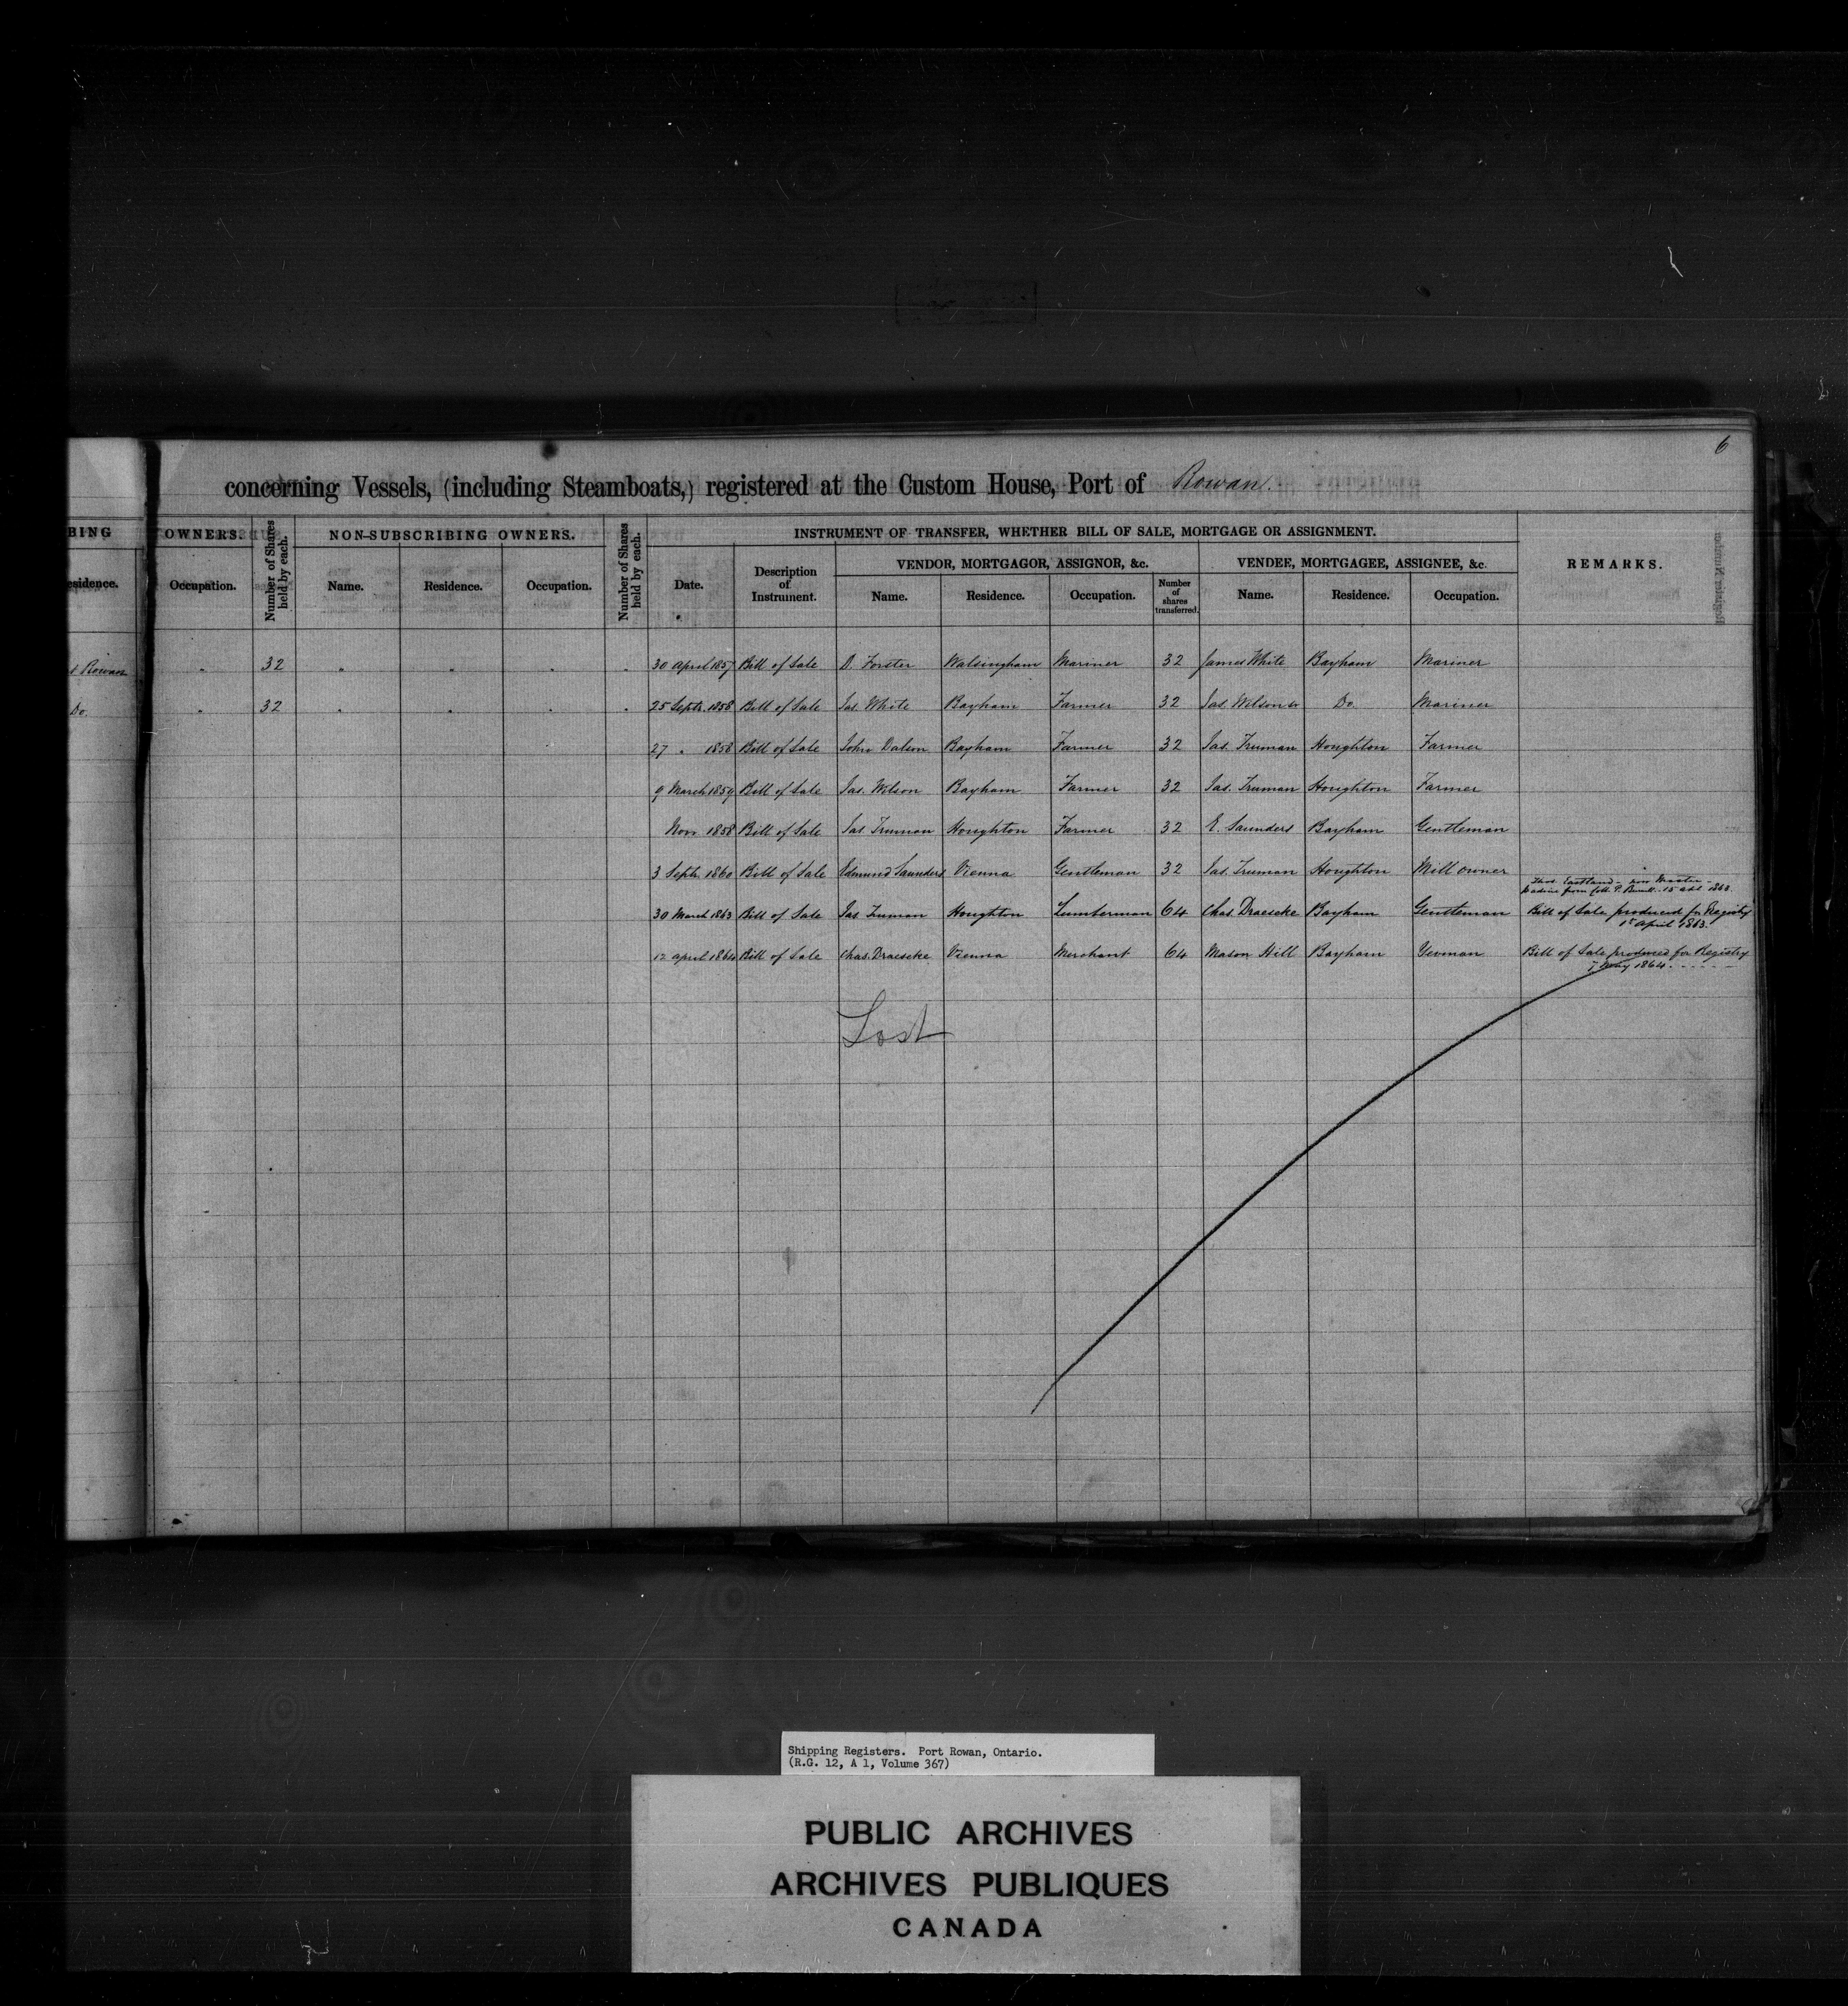 6
concerning Vessels, (including Steamboats,) registered at the Custom House, Port of Rowan.
BING OWNERS. Number of Shares held by each. NON-SUBSCRIBING OWNERS. Number of Shares held by each. INSTRUMENT OF TRANSFER, WHETHER BILL OF SALE, MORTGAGE OR ASSIGNMENT. REMARKS.
VENDOR, MORTGAGOR, ASSIGNOR, &c. VENDEE, MORTGAGEE, ASSIGNEE, &c.
esidence. Occupation. Name. Residence. Occupation. Date. Description of Instrument. Name. Residence. Occupation. Number of shares transferred. Name. Residence. Occupation.
Rowan " 32 " " " " 30 April 1857 Bill of Sale D. Forster Walsingham Mariner 32 James White Bayham Mariner
Do. " 32 " " " " 25 Septr. 1858 Bill of Sale Jas. White Bayham Farmer 32 Jas. Wilson Do. Mariner
27 " 1858 Bill of Sale John Bayham Farmer 32 Jas. Truman Houghton Farmer
9 March 1859 Bill of Sale Jas. Wilson Bayham Farmer 32 Jas. Truman Houghton Farmer
Novr. 1858 Bill of Sale Jas. Truman Houghton Farmer 32 E. Saunders Bayham Gentleman
3 Septr. 1860 Bill of Sale Edmund Saunders Vienna Gentleman 32 Jas. Truman Houghton Mill owner
Eastland - now Master -
from Coll. P. 15 1863.
30 March 1863 Bill of Sale Jas. Truman Houghton Lumberman 64 Chas. Draescke Bayham Gentleman Bill of Sale produced for Registry
April 1863.
12 April 1864 Bill of Sale Chas. Draescke Vienna Merchant 64 Mason Hill Bayham Yeoman Bill of Sale produced for Registry
7 May 1864.
Lost
Shipping Registers. Port Rowan, Ontario.
(R.G. 12, A 1, Volume 367)
PUBLIC ARCHIVES
ARCHIVES PUBLIQUES
CANADA